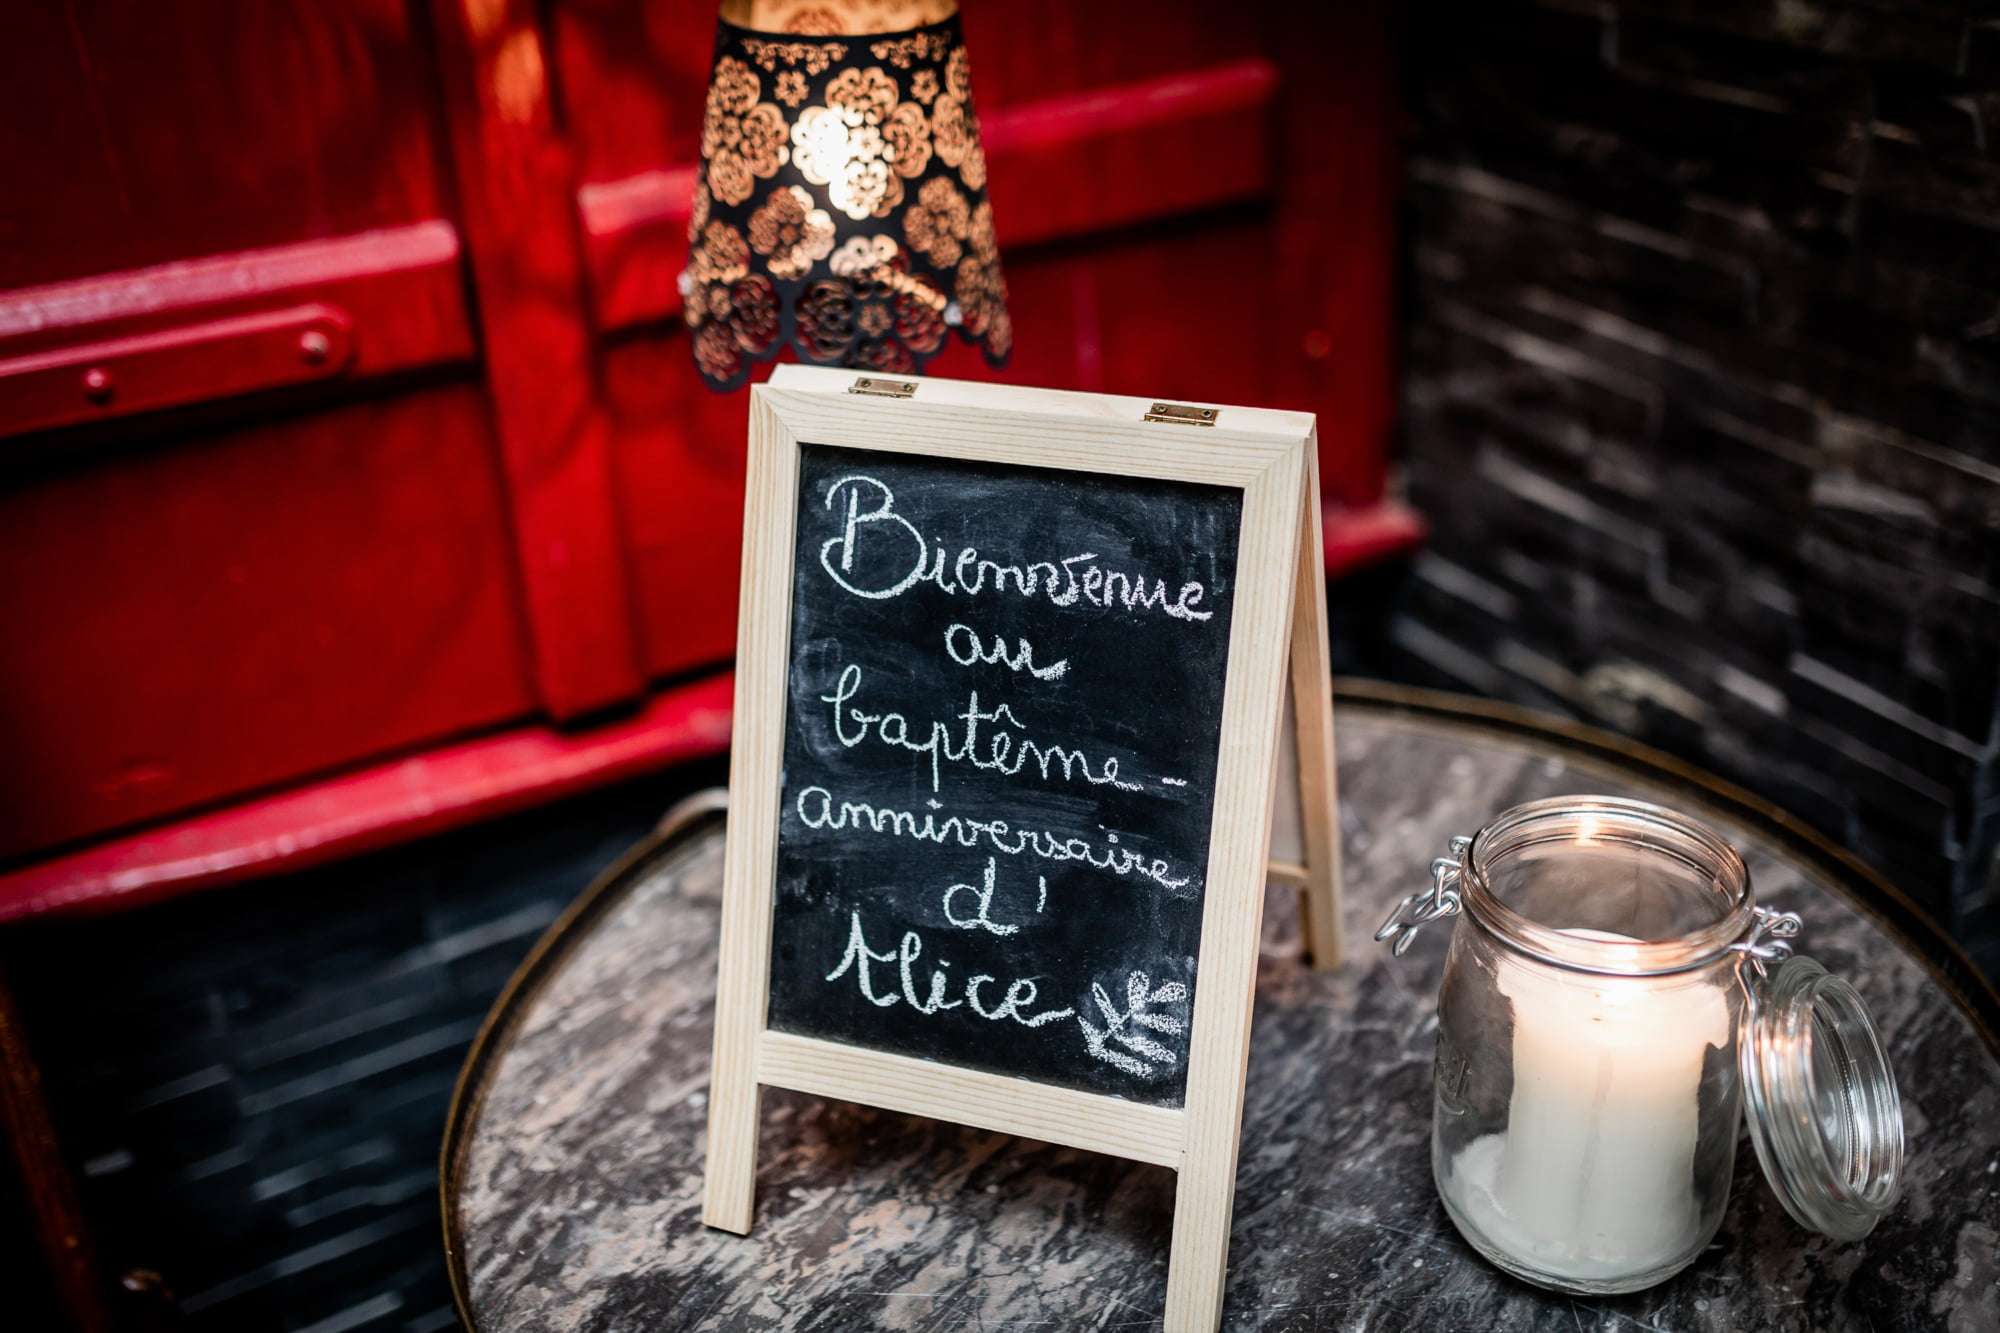 Bienvenue
au
baptême-
anniversaire
d'
Alice